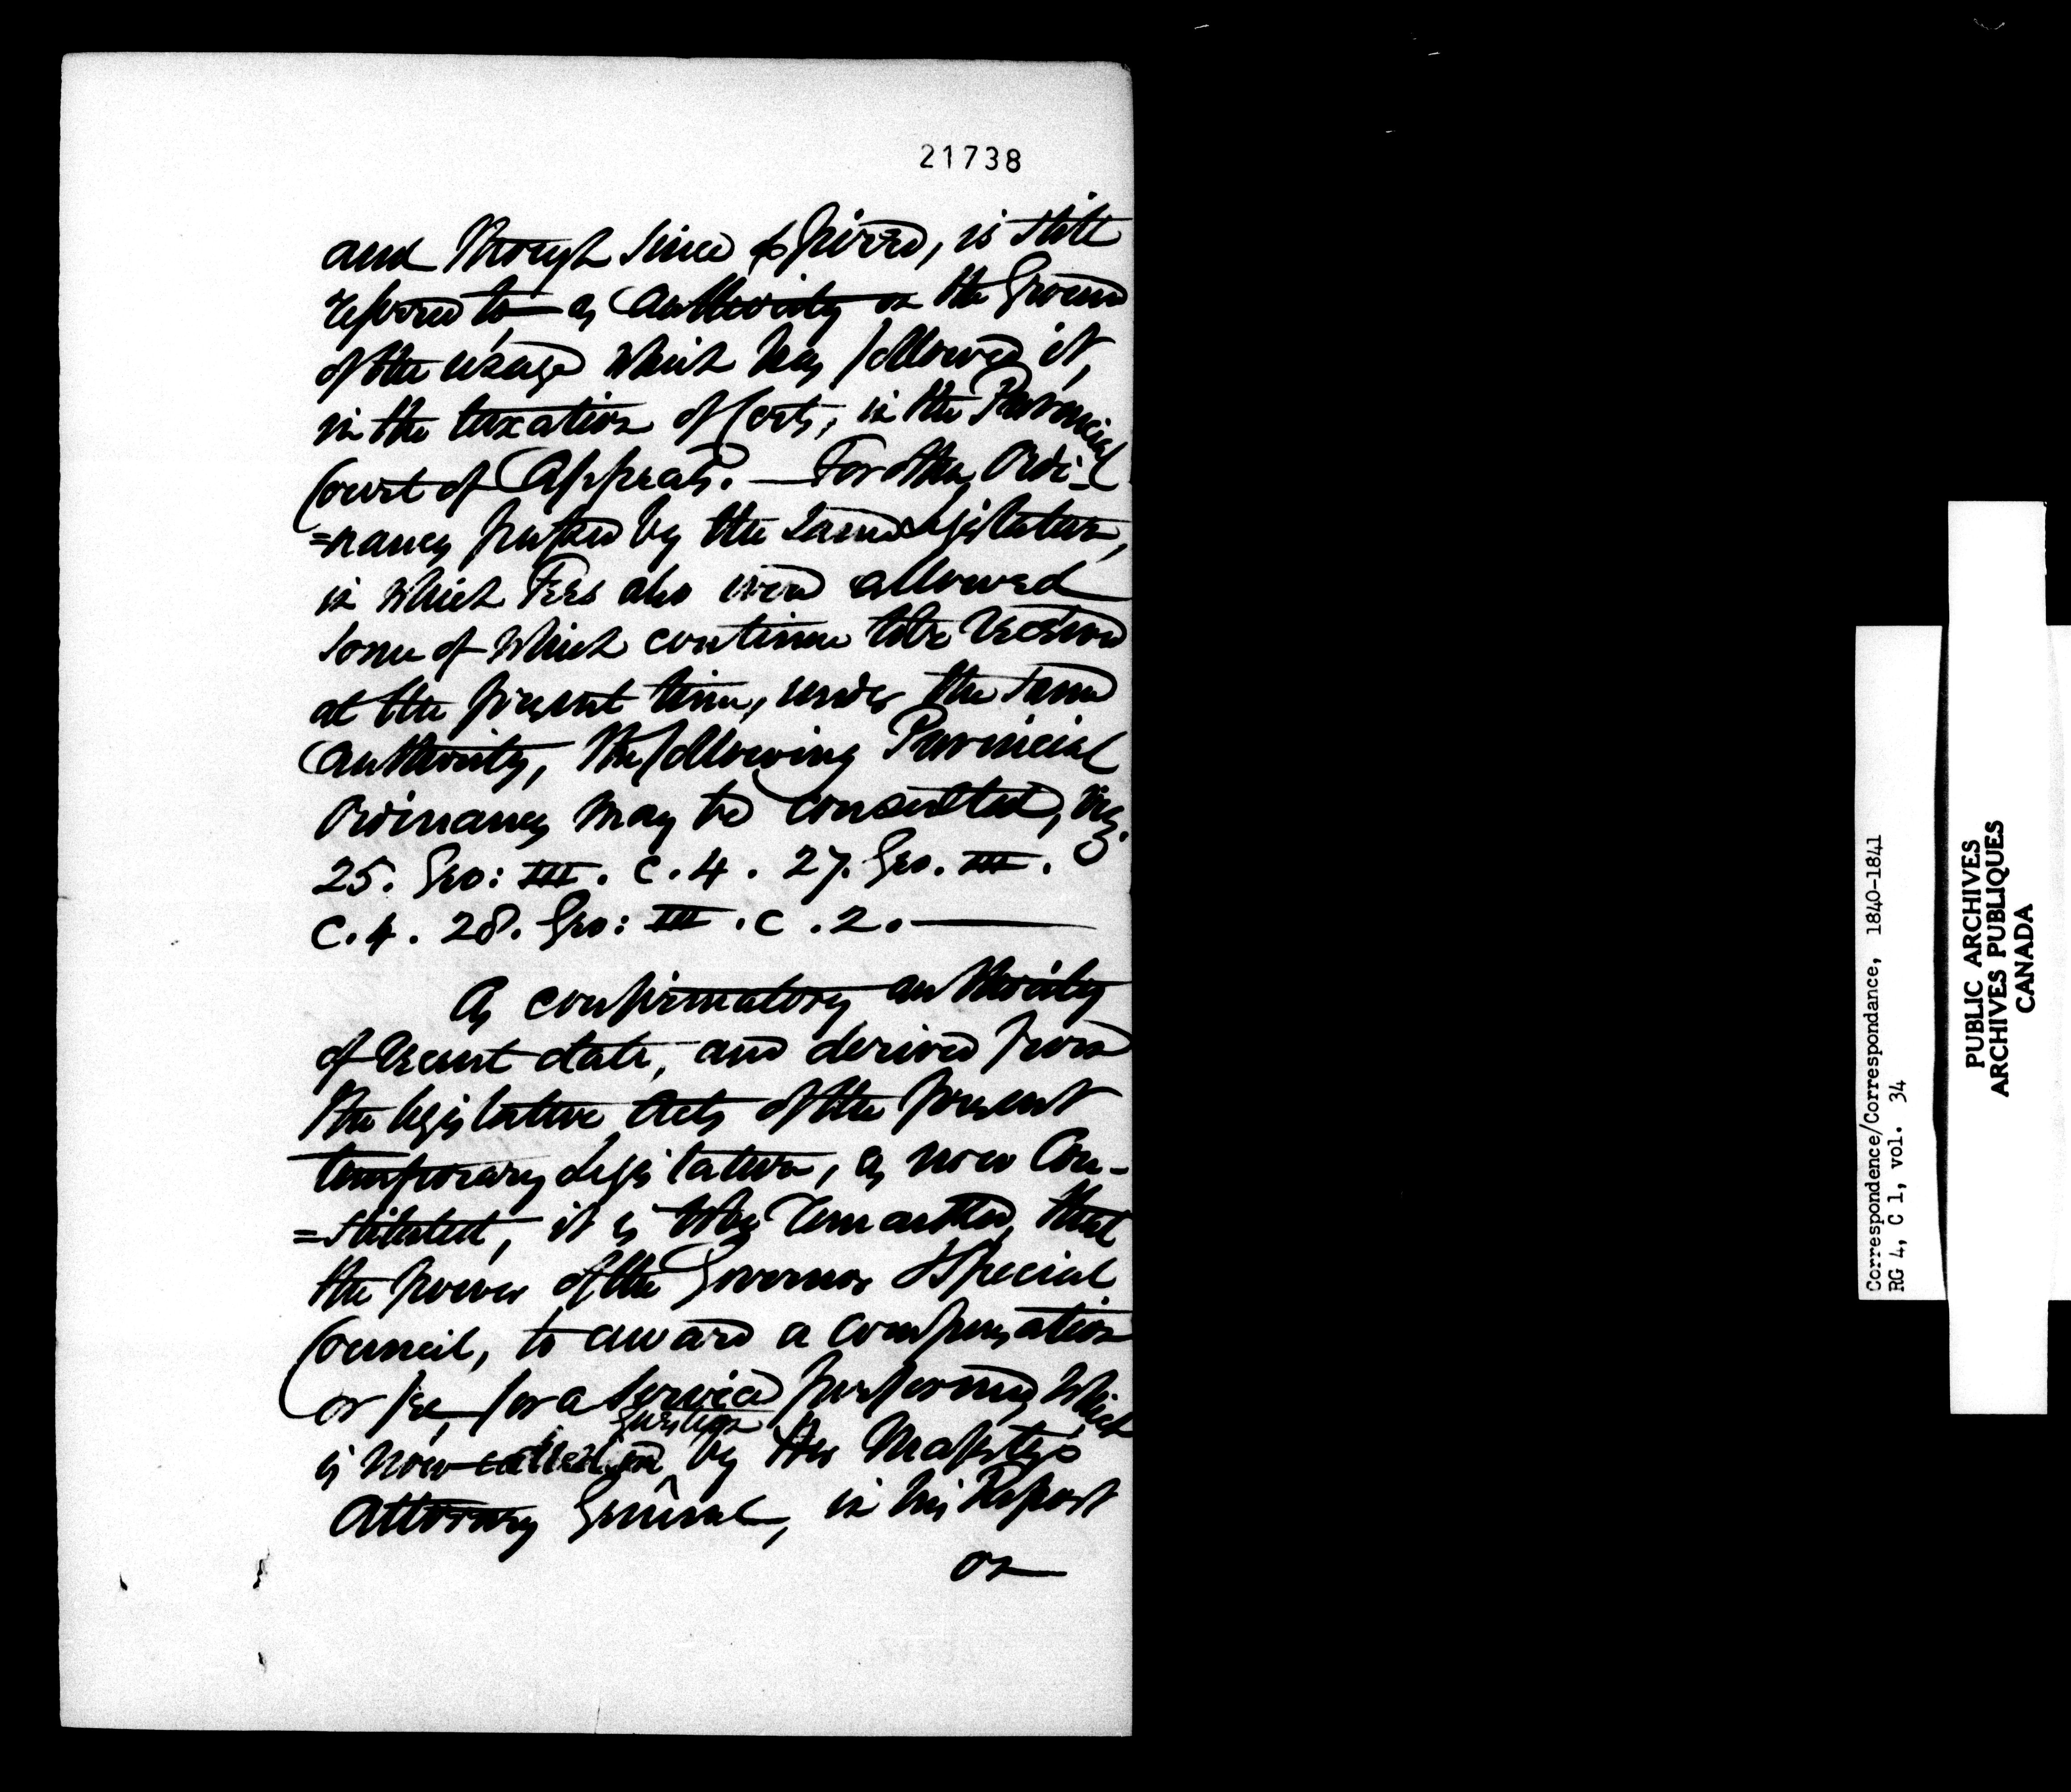 21738
and though since expired, is still
referred to as authority on the Ground
of the usage which has followed it,
in the taxation of Costs, in the Provincial
Court of Appeals. — For other Ordi-
=nances passed by the same Legislature,
in which Fees also were allowed
some of which continue to be received
at the present time, under the same
authority, the following Provincial
Ordinances may be consulted, viz.
25. Geo: III. c. 4. 27. Geo. III.
c. 4. 28. Geo: III. c. 2. —
As confirmatory authority
of recent date, and derived from
the legislative Acts of the present
temporary Legislature, as now Con-
=stituted, it is to be remarked, that
the power of the Governor & Special
Council, to award a compensation
or fee, for a service performed, which
questioned
is now by Her Majesty's
Attorney General, in his Report
on
Correspondence/Correspondance, 1840-1841
RG 4, C 1, vol. 34
PUBLIC ARCHIVES
ARCHIVES PUBLIQUES
CANADA